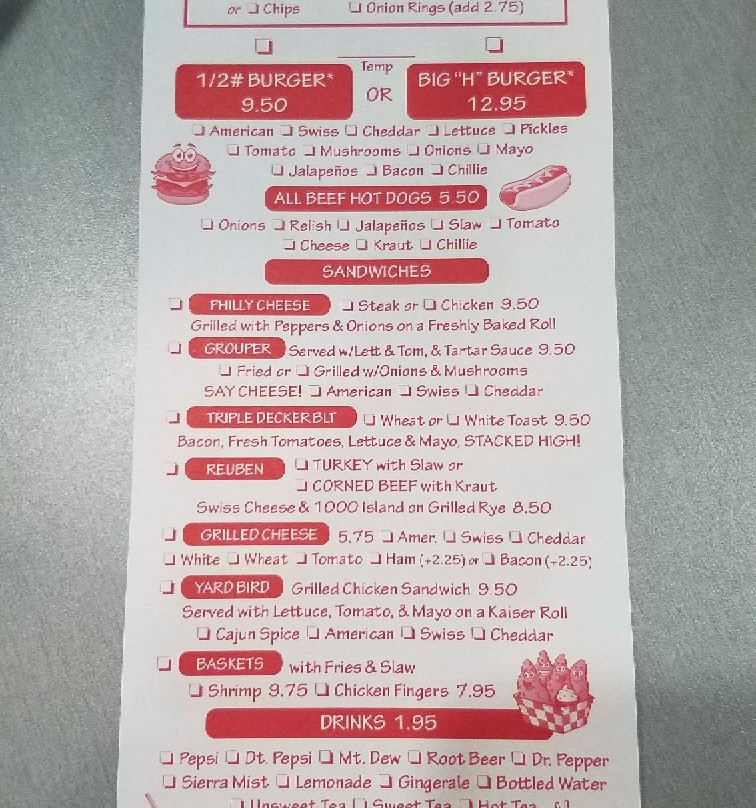 or ☐ Chips ☐ Onion Rings (add 2.75)
☐ ☐
Temp
1/2# BURGER* OR BIG "H" BURGER*
9.50 12.95
☐ American ☐ Swiss ☐ Cheddar ☐ Lettuce ☐ Pickles
☐ Tomato ☐ Mushrooms ☐ Onions ☐ Mayo
☐ Jalapeños ☐ Bacon ☐ Chillie
ALL BEEF HOT DOGS 5.50
☐ Onions ☐ Relish ☐ Jalapeños ☐ Slaw ☐ Tomato
☐ Cheese ☐ Kraut ☐ Chillie
SANDWICHES
☐ PHILLY CHEESE ☐ Steak or ☐ Chicken 9.50
Grilled with Peppers & Onions on a Freshly Baked Roll
☐ GROUPER Served w/Lett & Tom, & Tartar Sauce 9.50
☐ Fried or ☐ Grilled w/Onions & Mushrooms
SAY CHEESE! ☐ American ☐ Swiss ☐ Cheddar
☐ TRIPLE DECKER BLT ☐ Wheat or ☐ White Toast 9.50
Bacon, Fresh Tomatoes, Lettuce & Mayo, STACKED HIGH!
☐ REUBEN ☐ TURKEY with Slaw or
☐ CORNED BEEF with Kraut
Swiss Cheese & 1000 Island on Grilled Rye 8.50
☐ GRILLED CHEESE 5.75 ☐ Amer. ☐ Swiss ☐ Cheddar
☐ White ☐ Wheat ☐ Tomato ☐ Ham (+2.25) or ☐ Bacon (+2.25)
☐ YARD BIRD Grilled Chicken Sandwich 9.50
Served with Lettuce, Tomato, & Mayo on a Kaiser Roll
☐ Cajun Spice ☐ American ☐ Swiss ☐ Cheddar
☐ BASKETS with Fries & Slaw
☐ Shrimp 9.75 ☐ Chicken Fingers 7.95
DRINKS 1.95
☐ Pepsi ☐ Dt. Pepsi ☐ Mt. Dew ☐ Root Beer ☐ Dr. Pepper
☐ Sierra Mist ☐ Lemonade ☐ Gingerale ☐ Bottled Water
☐ Unsweet Tea ☐ Sweet Tea ☐ Hot Tea